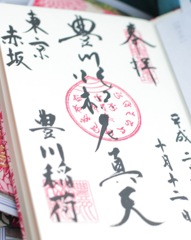 奉拝
平成二
十月十一日
豊川吒枳尼真天
豊川稲荷
東京
赤坂